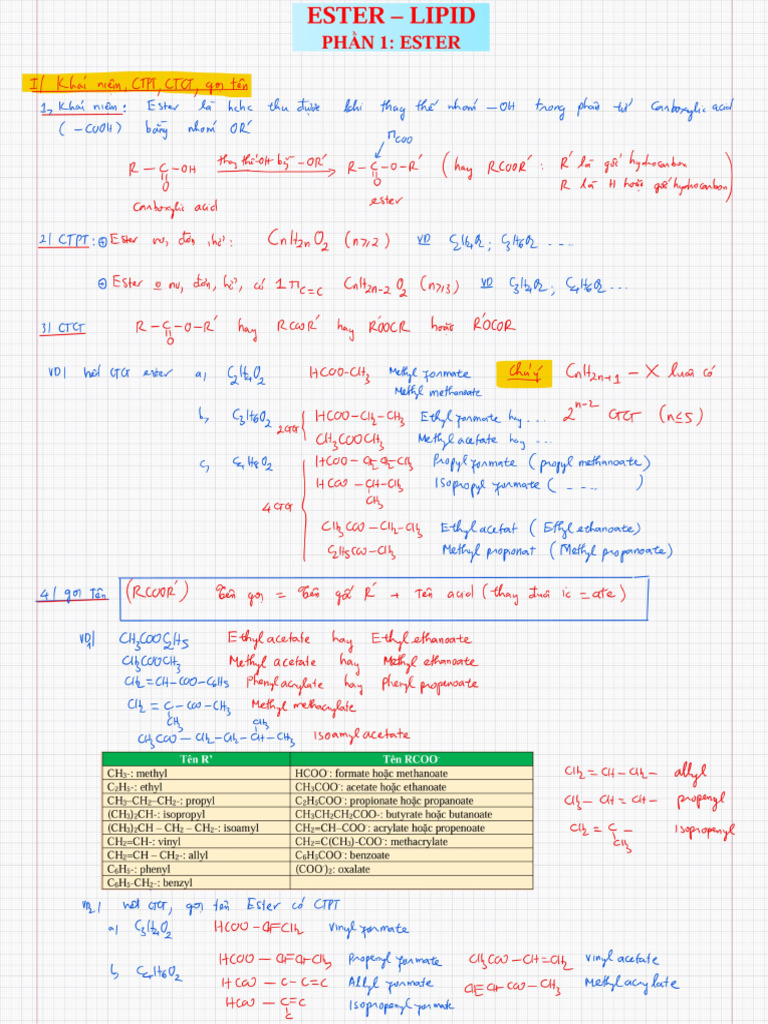 ESTER – LIPID
PHẦN 1: ESTER
I/ Khái niệm, CTPT, CTCT, gọi tên
1, Khái niệm: Ester là hchc thu được khi thay thế nhóm -OH trong phân tử Carboxylic acid
(-COOH) bằng nhóm OR'
π COO
R - C - OH thay thế OH bằng -OR' R - C - O - R' (hay RCOOR': R' là gốc hydrocarbon
O O R là H hoặc gốc hydrocarbon)
Carboxylic acid ester
2/ CTPT: ⊕ Ester no, đơn, hở: CnH2nO2 (n≥2) VD C2H4O2; C3H6O2 ....
⊕ Ester o no, đơn, hở, có 1π C=C CnH2n-2O2 (n≥3) VD C3H4O2; C4H6O2 ...
3/ CTCT R - C - O - R' hay RCOOR' hay R'OOCR hoặc R'OCOR
O
VD/ viết CTCT ester a, C2H4O2 HCOO-CH3 Methyl formate Chú ý CnH2n+1 - X luôn có
Methyl methanoate
b, C3H6O2 2CTCT HCOO-CH2-CH3 Ethyl formate hay ... 2^n-2 CTCT (n≤5)
CH3COOCH3 Methyl acetate hay ...
c, C4H8O2 4CTCT HCOO-CH2-CH2-CH3 Propyl formate (propyl methanoate)
HCOO - CH-CH3 Isopropyl formate (- - ... )
CH3
CH3COO-CH2-CH3 Ethyl acetat (Ethyl ethanoate)
C2H5COO-CH3 Methyl propionat (Methyl propanoate)
4/ gọi tên (RCOOR') Tên gọi = Tên gốc R' + Tên acid (thay đuôi ic = ate)
VD1/ CH3COOC2H5 Ethyl acetate hay Ethyl ethanoate
CH3COOCH3 Methyl acetate hay Methyl ethanoate
CH2=CH-COO-C6H5 Phenyl acrylate hay phenyl propenoate
CH2=C-COO-CH3 Methyl methacrylate
CH3 CH3
CH3COO-CH2-CH2-CH-CH3 Isoamyl acetate
Tên R' Tên RCOO-
CH3-: methyl HCOO-: formate hoặc methanoate
C2H5-: ethyl CH3COO-: acetate hoặc ethanoate
CH3–CH2–CH2-: propyl C2H5COO-: propionate hoặc propanoate
(CH3)2CH-: isopropyl CH3CH2CH2COO-: butyrate hoặc butanoate
(CH3)2CH – CH2 – CH2-: isoamyl CH2=CH–COO-: acrylate hoặc propenoate
CH2=CH-: vinyl CH2=C(CH3)-COO-: methacrylate
CH2=CH – CH2-: allyl C6H5COO-: benzoate
C6H5-: phenyl (COO-)2: oxalate
C6H5-CH2-: benzyl
CH2=CH-CH2- allyl
CH3-CH=CH- propenyl
CH2=C- Isopropenyl
CH3
VD2/ viết CTCT, gọi tên Ester có CTPT
a/ C3H4O2 HCOO-CH=CH2 Vinyl formate
b, C4H6O2 HCOO-CH=CH-CH3 Propenyl formate CH3COO-CH=CH2 vinyl acetate
HCOO-C-C=C Allyl formate CH2=CH-COO-CH3 Methyl acrylate
HCOO-C=C Isopropenyl formate
C